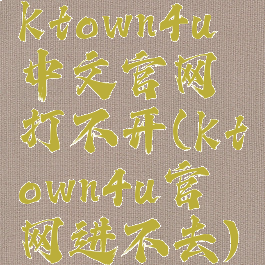 ktown4u
中文官网
打不开(kt
own4u官
网进不去)